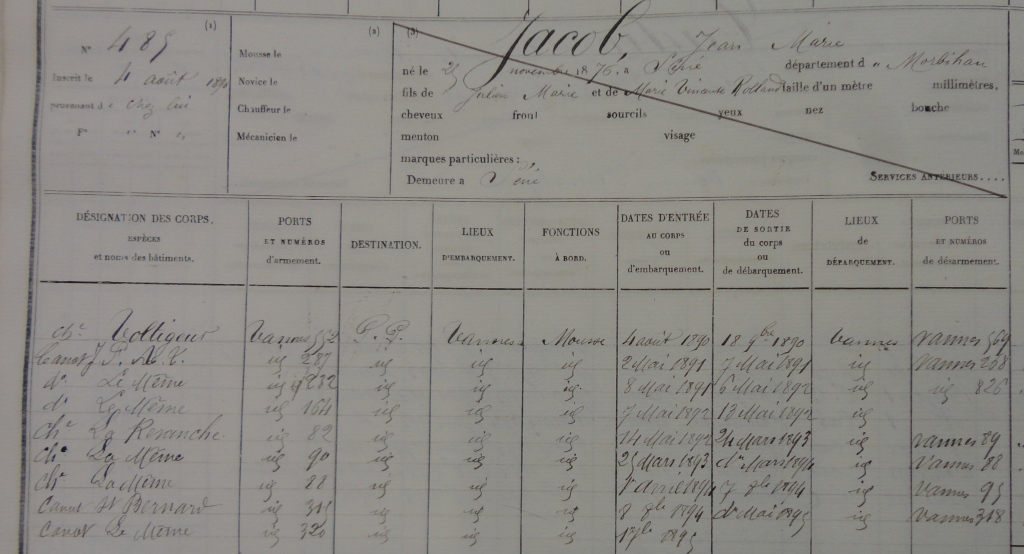 (1)
N° 485
Inscrit le 4 août 1890
provenant d " chez lui
F° " N° "
(2)
Mousse le
Novice le
Chauffeur le
Mécanicien le
(3)
Jacob, Jean Marie
né le 25 novembre 1876, a Séné département d u Morbihan
fils de Julien Marie et de Marie Vincente Rolland taille d'un mètre millimètres,
cheveux front sourcils yeux nez bouche
menton visage
marques particulières :
Demeure a Séné SERVICES ANTÉRIEURS....
DÉSIGNATION DES CORPS, ESPÈCES et noms des bâtiments.
PORTS ET NUMÉROS d'armement.
DESTINATION.
LIEUX D'EMBARQUEMENT.
FONCTIONS À BORD.
DATES D'ENTRÉE AU CORPS ou d'embarquement.
DATES DE SORTIE du corps ou de débarquement.
LIEUX de DÉBARQUEMENT.
PORTS ET NUMÉROS de désarmement.
che Voltigeur Vannes 552 P. P. Vannes Mousse 4 août 1890 18 9bre 1890 Vannes Vannes 569
Canot J. P. id 287 id id id 2 Mai 1891 7 Mai 1891 id Vannes 268
do Le Même id 232 id id id 8 Mai 1891 6 Mai 1892 id id 826
do Le Même id 164 id id id 7 Mai 1892 13 Mai 1892 id
che La Revanche id 82 id id id 14 Mai 1892 24 Mars 1893 id Vannes 89
che La Même id 90 id id id 25 Mars 1893 Mars 1894 id Vannes 88
che La Même id 88 id id id 1er Avril 1894 7 8bre 1894 id Vannes 95
Canot St Bernard id 315 id id id 8 8bre 1894 Mai 1895 id Vannes 318
Canot Le Même id 320 id id id 1895